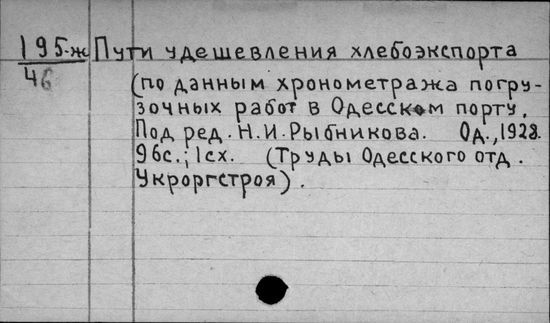 195-ж Пути удешевления хлебоэкспорта
46
(по данным хронометража погру-
зочных работ в Одесском порту.
Под ред. Н.И.Рыбникова. Од.,1928.
96с.; 1сх. (Труды Одесского отд.
Укроргстроя).